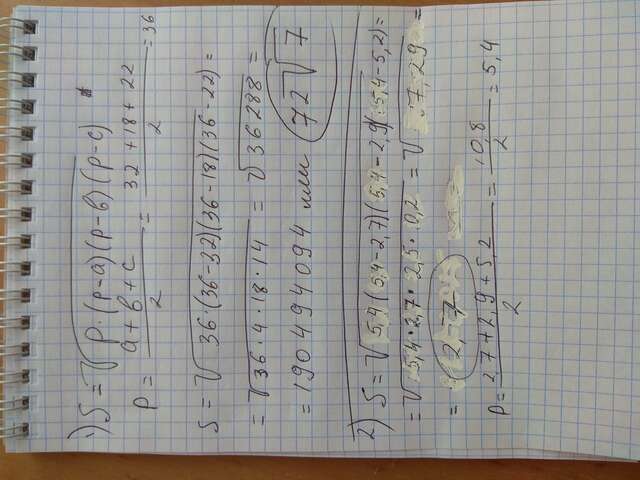 1) S = √p·(p-a)(p-в)(p-c)
p = a+в+c / 2 = 32+18+22 / 2 = 36
S = √36·(36-32)(36-18)(36-22) =
= √36·4·18·14 = √36288 =
= 190494094 или 72√7
2) S = √5,4(5,4-2,7)(5,4-2,9)(5,4-5,2) =
= √5,4·2,7·2,5·0,2 = √7,29 =
= 2,7
p = 2,7+2,9+5,2 / 2 = 10,8 / 2 = 5,4